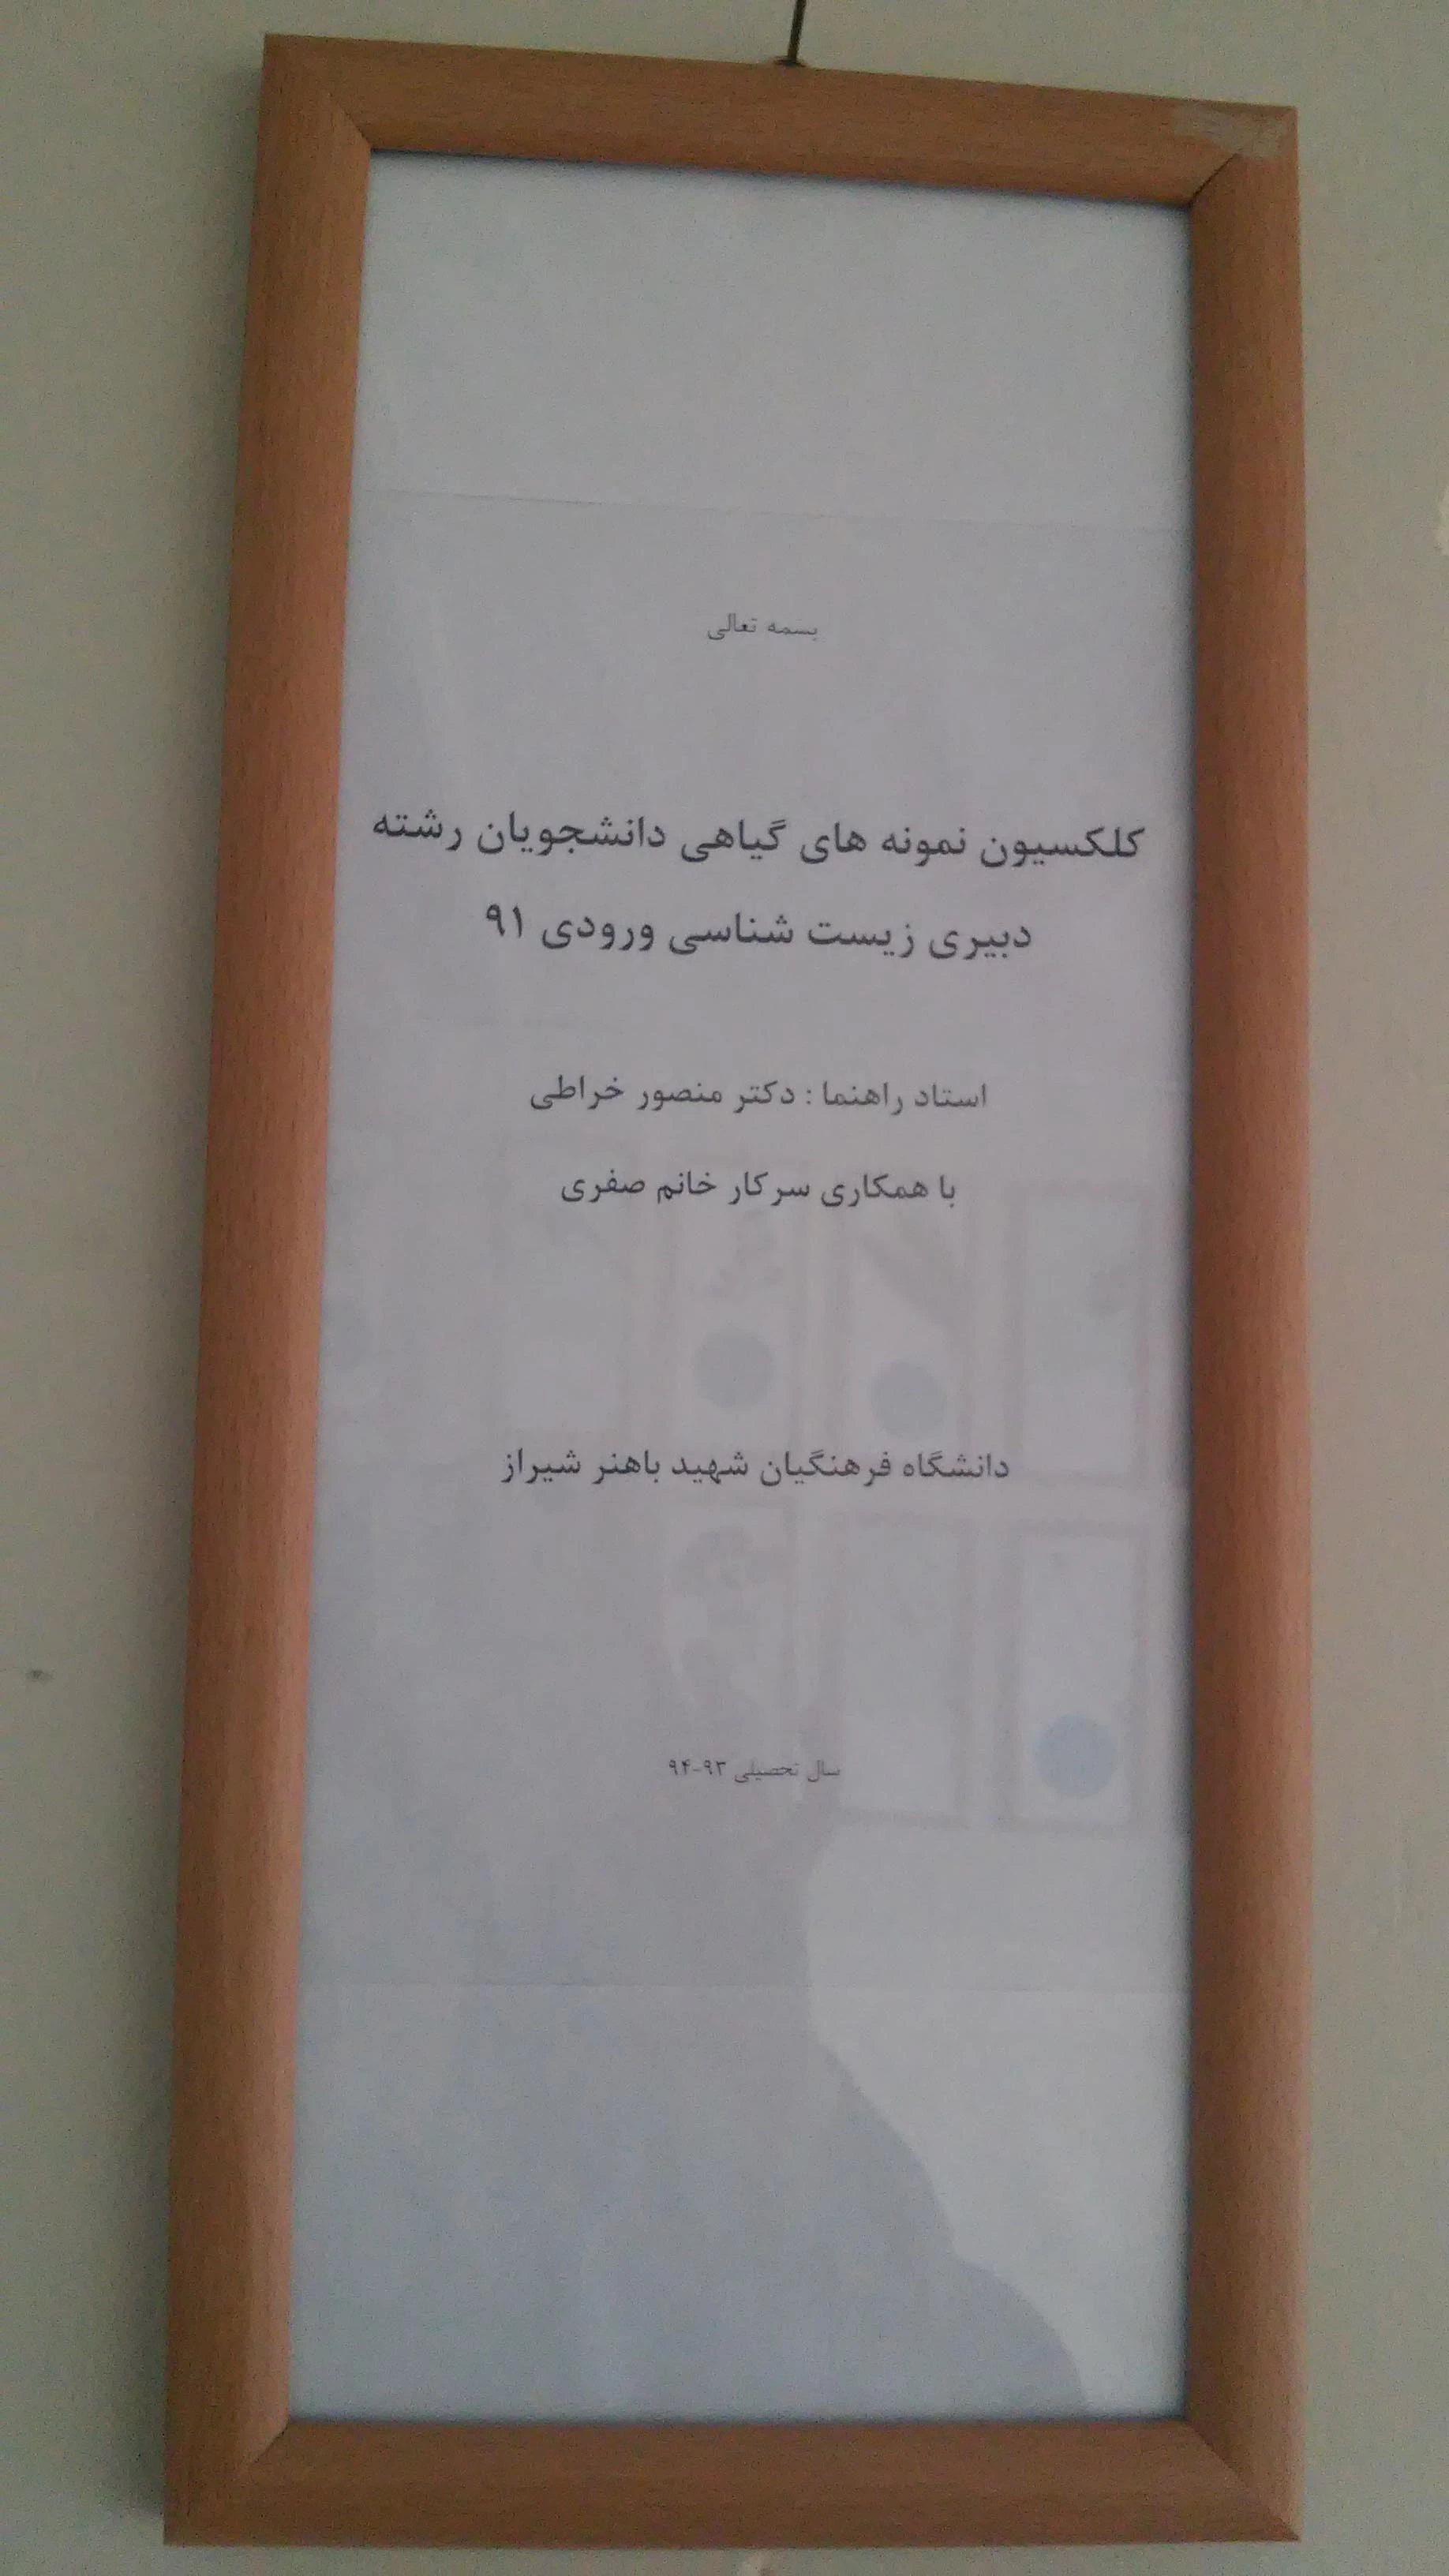 بسمه تعالی
کلکسیون نمونه های گیاهی دانشجویان رشته
دبیری زیست شناسی ورودی ۹۱
استاد راهنما : دکتر منصور خراطی
با همکاری سرکار خانم صفری
دانشگاه فرهنگیان شهید باهنر شیراز
سال تحصیلی ۹۳-۹۴